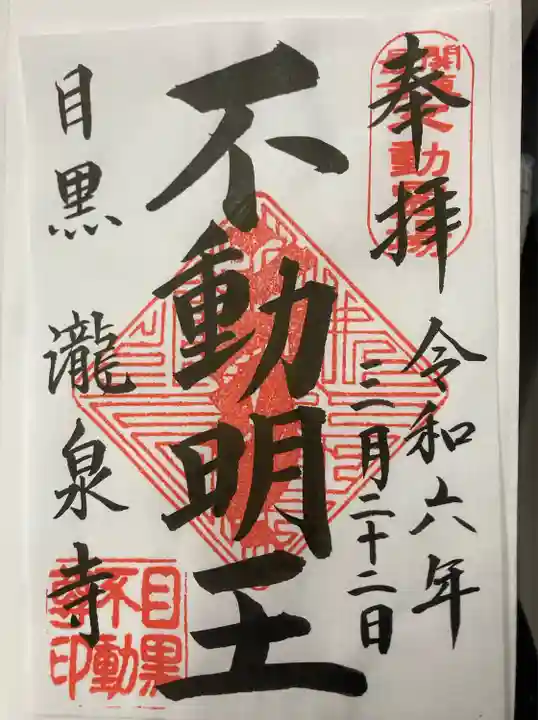 奉拝
令和六年
三月二十二日
不動明王
目黒 瀧泉寺
目黒
不動